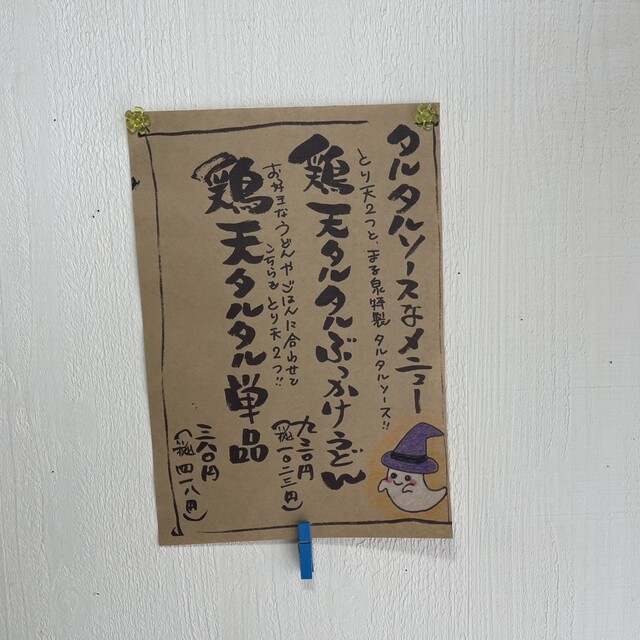 タルタルソースなメニュー
とり天2つと、まる泉特製タルタルソース!!
鶏天タルタルぶっかけうどん
九三〇円
(税一〇二三円)
お好きなうどんやごはんに合わせて
こちらもとり天2つ!!
鶏天タルタル単品
三八〇円
(税四一八円)